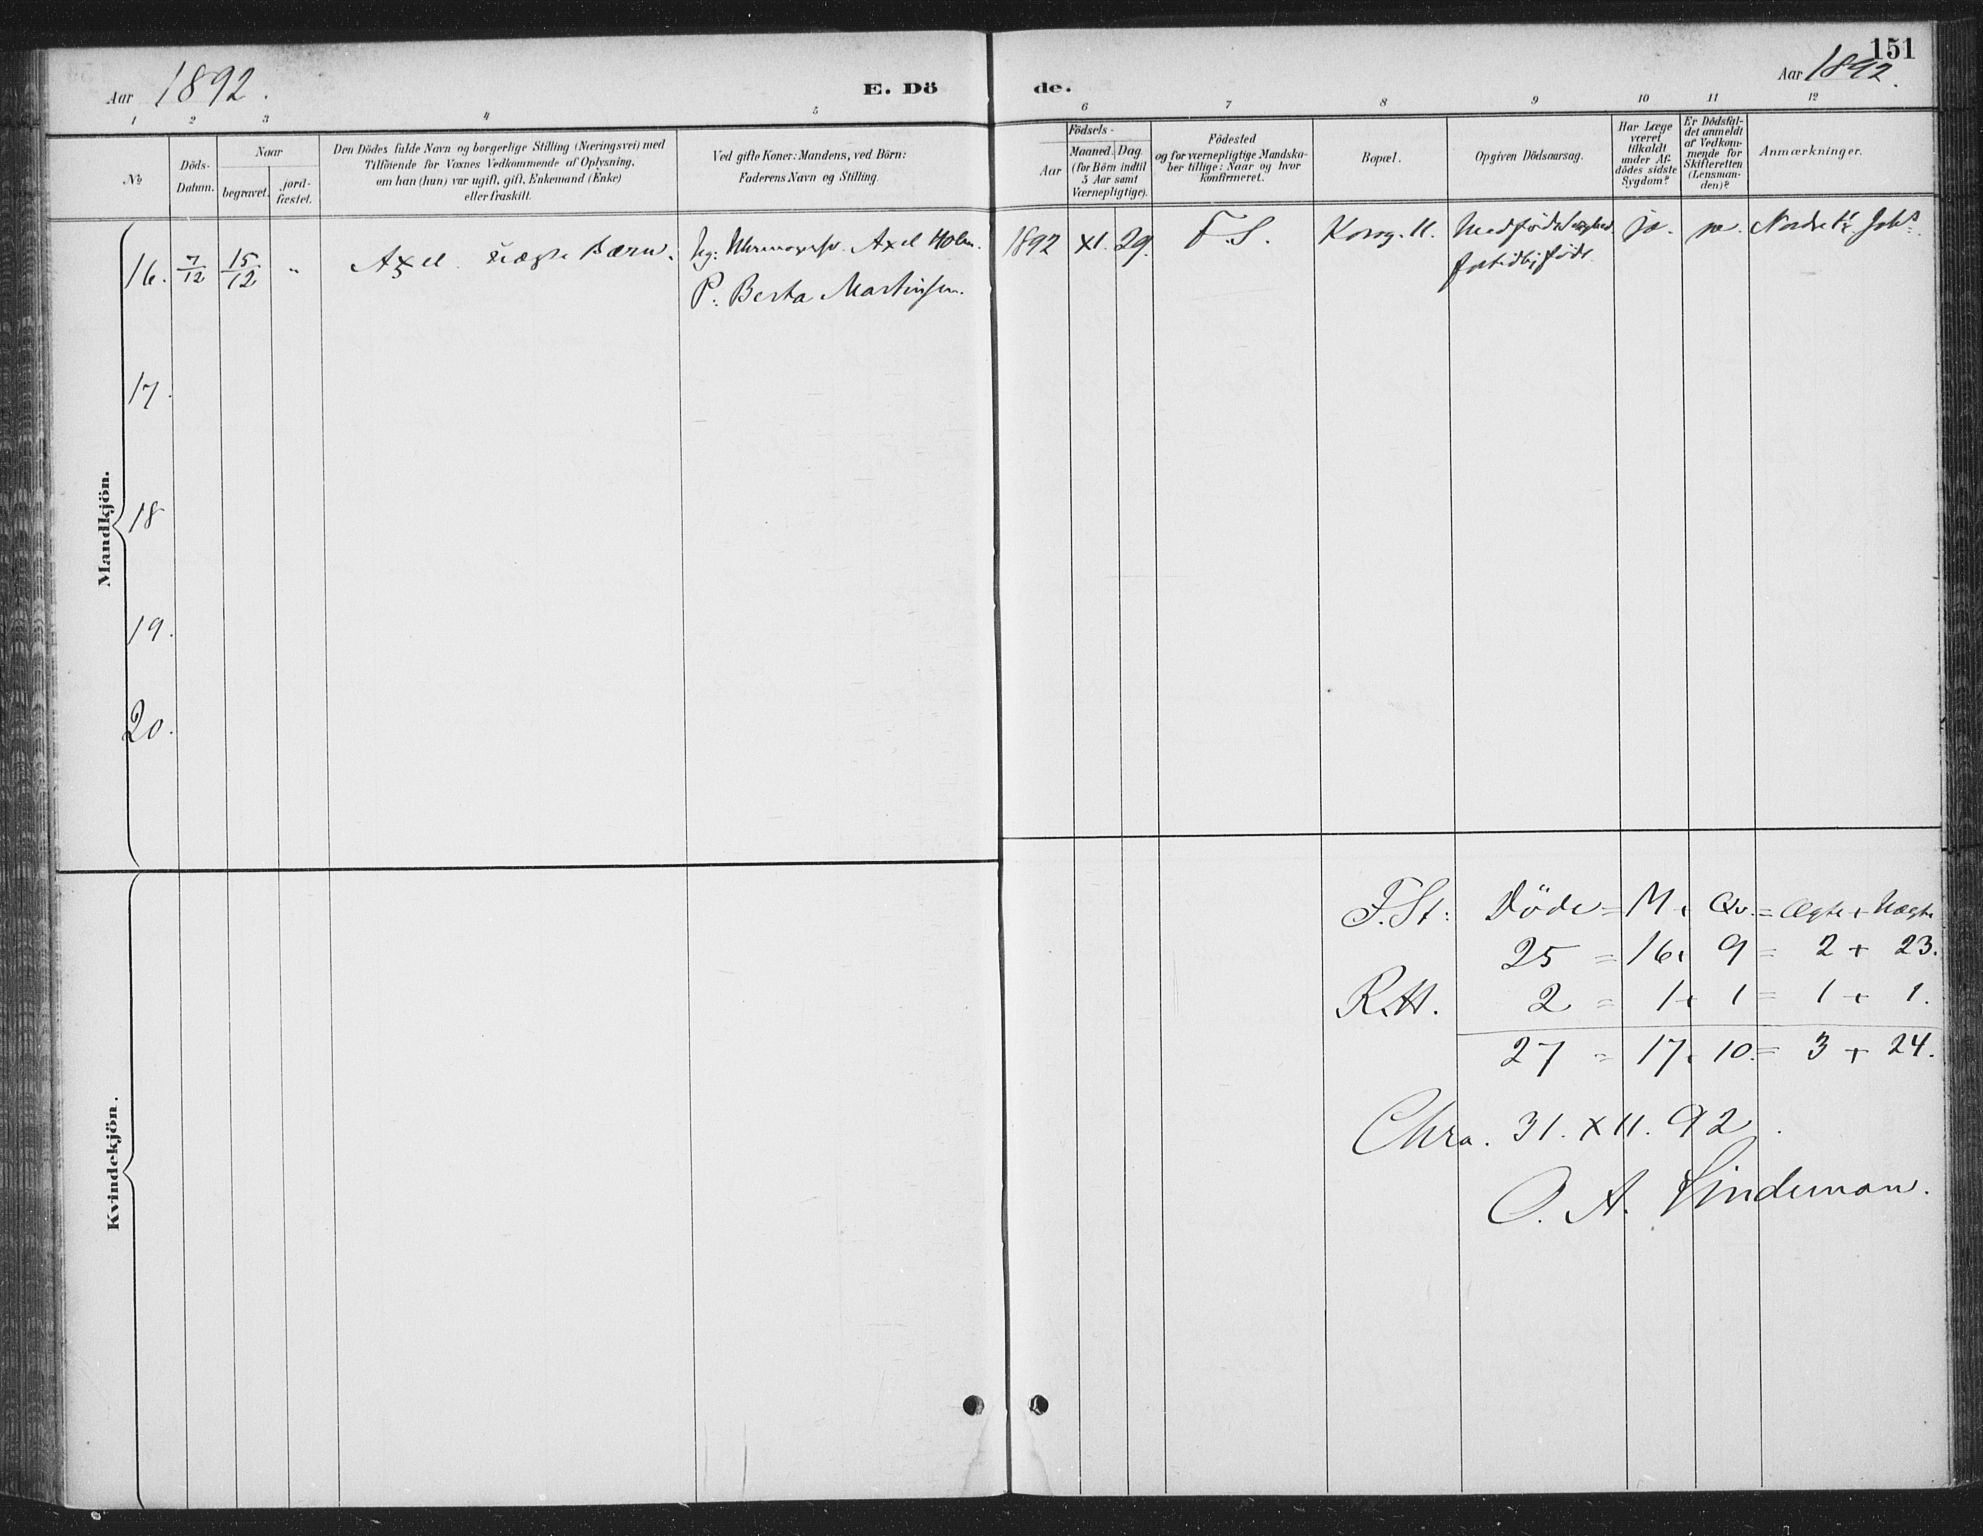 151
Aar 1892.
E. Dö
de.
Aar 1892.
1 2 3 4 5 6 7 8 9 10 11 12
№
Döds-
Datum.
Naar
begravet.
jord-
fæstet.
Den Dödes fulde Navn og borgerlige Stilling (Næringsvei) med
Tilföiende for Voxnes Vedkommende af Oplysning,
om han (hun) var ugift, gift, Enkemand (Enke)
eller fraskilt.
Ved gifte Koner: Mandens, ved Börn:
Faderens Navn og Stilling.
Födsels-
Aar
Maaned.
Dag
(for Börn indtil
5 Aar samt
Værnepligtige).
Födested
og for værnepligtige Mandska-
ber tillige: Naar og hvor
konfirmeret.
Bopæl.
Opgiven Dödsaarsag.
Har Læge
været
tilkaldt
under Af-
dödes sidste
Sygdom?
Er Dödsfal-
det anmeldt
af Vedkom-
mende for
Skifteretten
(Lensman-
den)?
Anmærkninger.
Mandkjön.
16. 7/12 15/12 " Axel uægte Barn. Axel Holm. 1892 XI. 29. F.S. 11. ja. Nordre
P: Berta Martinsen.
17.
18
19.
20.
Kvindekjön.
F. St: Döde = M + Qv. = Ægte + Uægte
25 = 16 + 9 = 2 + 23.
R.H. 2 = 1 + 1 = 1 + 1.
27 = 17 + 10 = 3 + 24.
Chra. 31. XII. 92.
O. A. Lindeman.